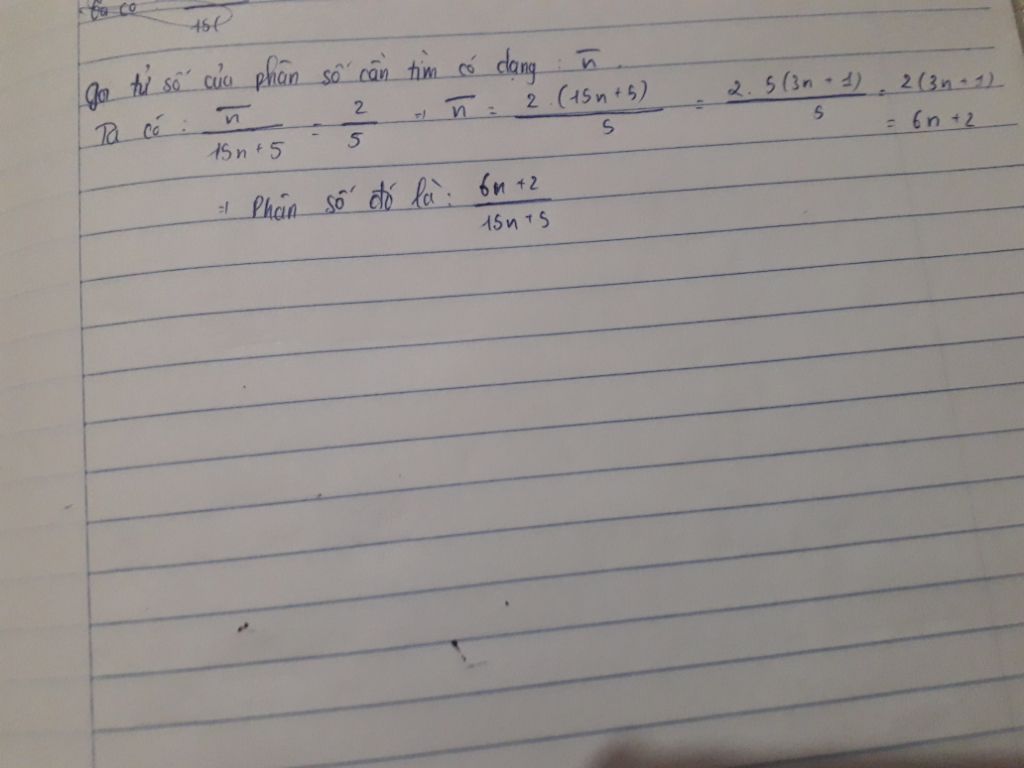 Ta có 15(
Gọi tử số của phân số cần tìm có dạng : n̅ .
Ta có : n̅ / 15n + 5 = 2 / 5 => n̅ = 2 . (15n + 5) / 5 = 2 . 5(3n + 1) / 5 = 2(3n + 1)
= 6n + 2
=> Phân số đó là : 6n + 2 / 15n + 5